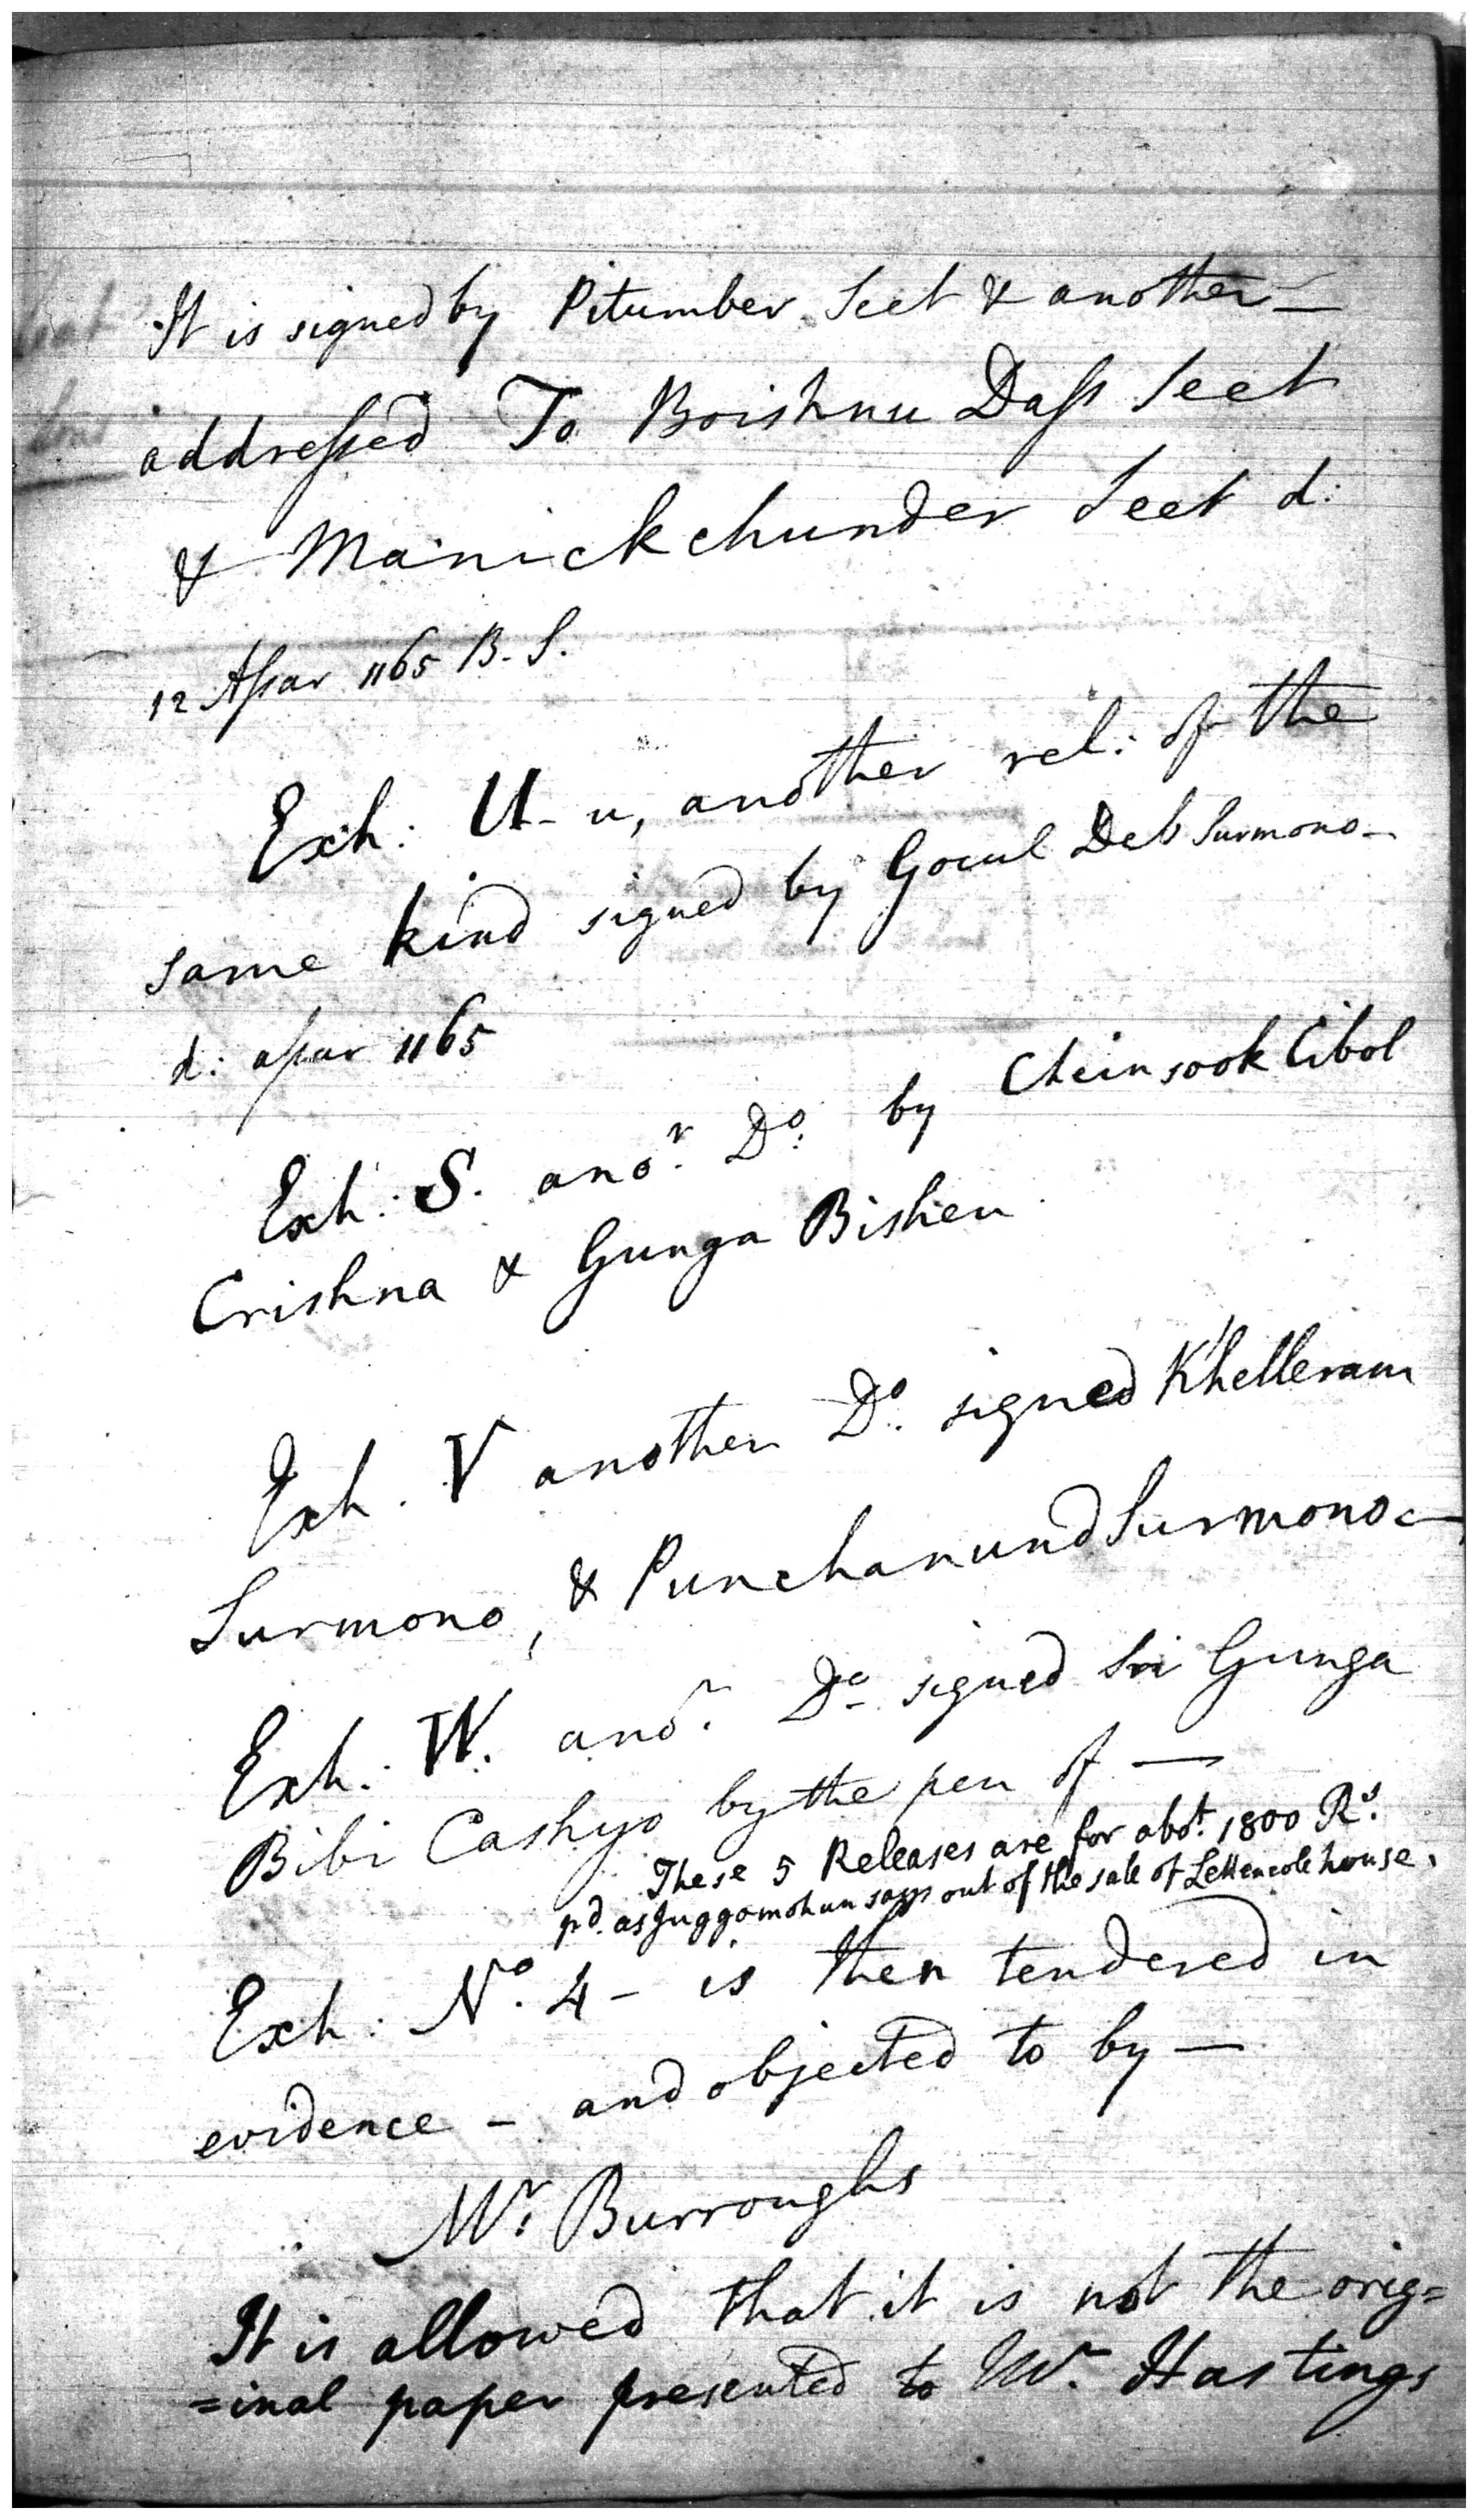 It is signed by Pitumber Seet & another —
addressed To Boishnu Dass Seet
& Manickchunder Seet d:
12 Assar 1165 B. S.
Exh: U - u, another rel: of the
same kind signed by Gocul Deb Surmono —
d: assar 1165
Exh: S. anor. Do. by Cheinsook Cibol
Crishna & Gunga Bishen
Exh. V another Do. signed Khelleram
Surmono, & Punchanund Surmono —
Exh: W. anor. Do. signed Sri Gunga
Bibi Cashyo by the pen of —
These 5 Releases are for abot. 1800 Rs.
pd. as Juggomohun says out of the sale of house.
Exh: No. 4 - is then tendered in
evidence - and objected to by —
Mr. Burroughs
It is allowed that it is not the orig=
=inal paper presented to Mr. Hastings